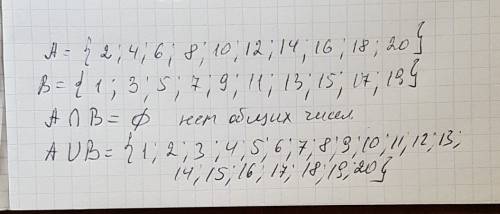 A = { 2 ; 4 ; 6 ; 8 ; 10 ; 12 ; 14 ; 16 ; 18 ; 20 }
B = { 1 ; 3 ; 5 ; 7 ; 9 ; 11 ; 13 ; 15 ; 17 ; 19 }
A ∩ B = ∅ нет общих чисел.
A ∪ B = { 1 ; 2 ; 3 ; 4 ; 5 ; 6 ; 7 ; 8 ; 9 ; 10 ; 11 ; 12 ; 13 ;
14 ; 15 ; 16 ; 17 ; 18 ; 19 ; 20 }